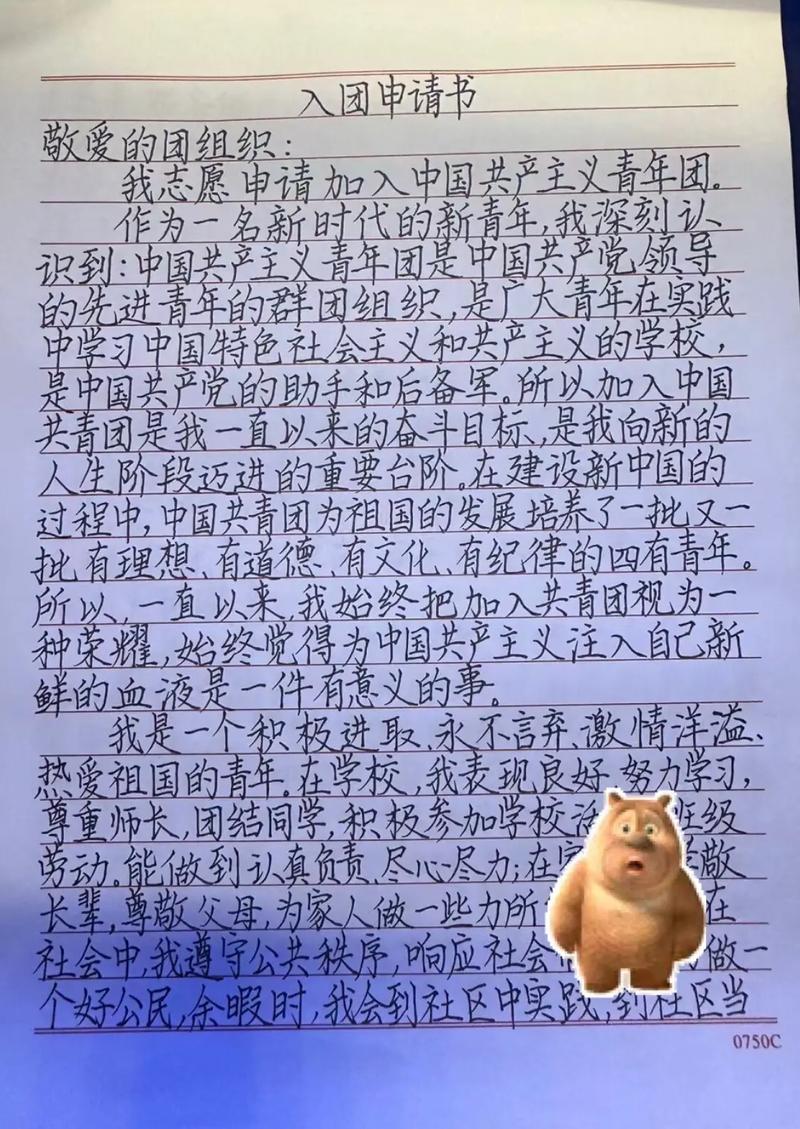 入团申请书
敬爱的团组织：
我志愿申请加入中国共产主义青年团。
作为一名新时代的新青年，我深刻认
识到：中国共产主义青年团是中国共产党领导
的先进青年的群团组织，是广大青年在实践
中学习中国特色社会主义和共产主义的学校，
是中国共产党的助手和后备军。所以加入中国
共青团是我一直以来的奋斗目标，是我向新的
人生阶段迈进的重要台阶。在建设新中国的
过程中，中国共青团为祖国的发展培养了一批又一
批有理想、有道德、有文化、有纪律的四有青年。
所以，一直以来，我始终把加入共青团视为一
种荣耀，始终觉得为中国共产主义注入自己新
鲜的血液是一件有意义的事。
我是一个积极进取、永不言弃、激情洋溢、
热爱祖国的青年。在学校，我表现良好，努力学习，
尊重师长，团结同学，积极参加学校活 班级
劳动。能做到认真负责、尽心尽力；在 敬
长辈，尊敬父母，为家人做一些力所 在
社会中，我遵守公共秩序，响应社会 做一
个好公民，余暇时，我会到社区中实践，到社区当
0750C